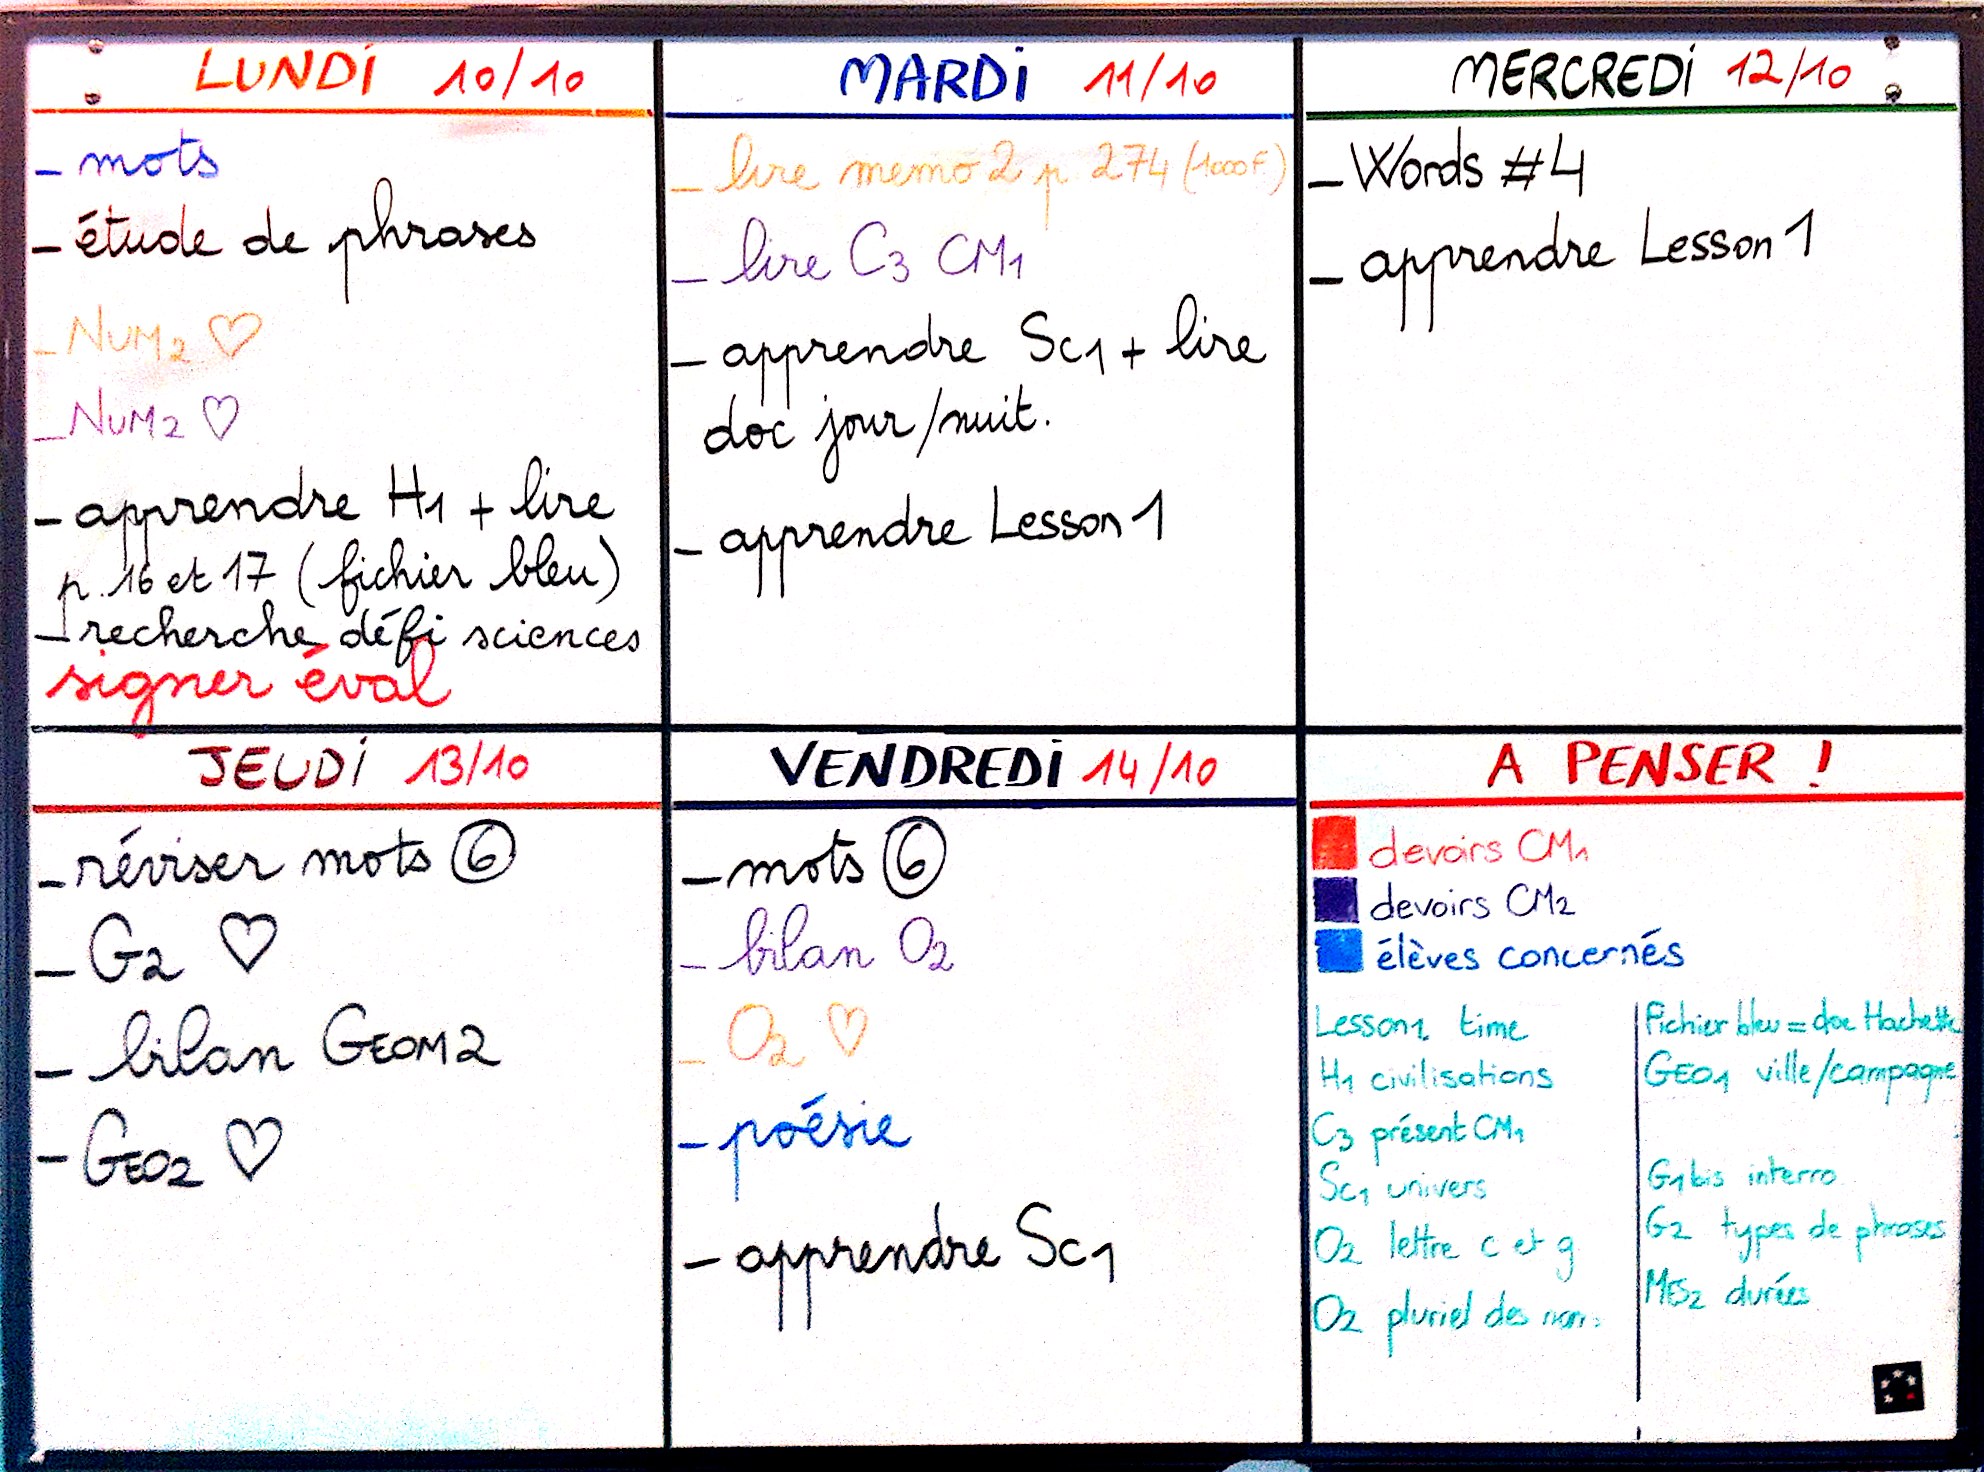 LUNDI 10/10
- mots
- étude de phrases
- NUM2 ♡
- NUM2 ♡
- apprendre H1 + lire
p. 16 et 17 (fichier bleu)
- recherche défi sciences
signer éval
MARDI 11/10
- lire memo 2 p 274 (1000F.)
- lire C3 CM1
- apprendre Sc1 + lire
doc jour/nuit.
- apprendre Lesson 1
MERCREDI 12/10
- Words #4
- apprendre Lesson 1
JEUDI 13/10
- réviser mots ⑥
- G2 ♡
- bilan GEOM2
- GEO2 ♡
VENDREDI 14/10
- mots ⑥
- bilan O2
- O2 ♡
- poésie
- apprendre Sc1
A PENSER !
devoirs CM1
devoirs CM2
élèves concernés
Lesson1 time
H1 civilisations
C3 présent CM1
Sc1 univers
O2 lettre c et g
O2 pluriel des
Fichier bleu = doc Hachette
GEO1 ville/campagne
G1bis interro
G2 types de phrases
MES2 durées